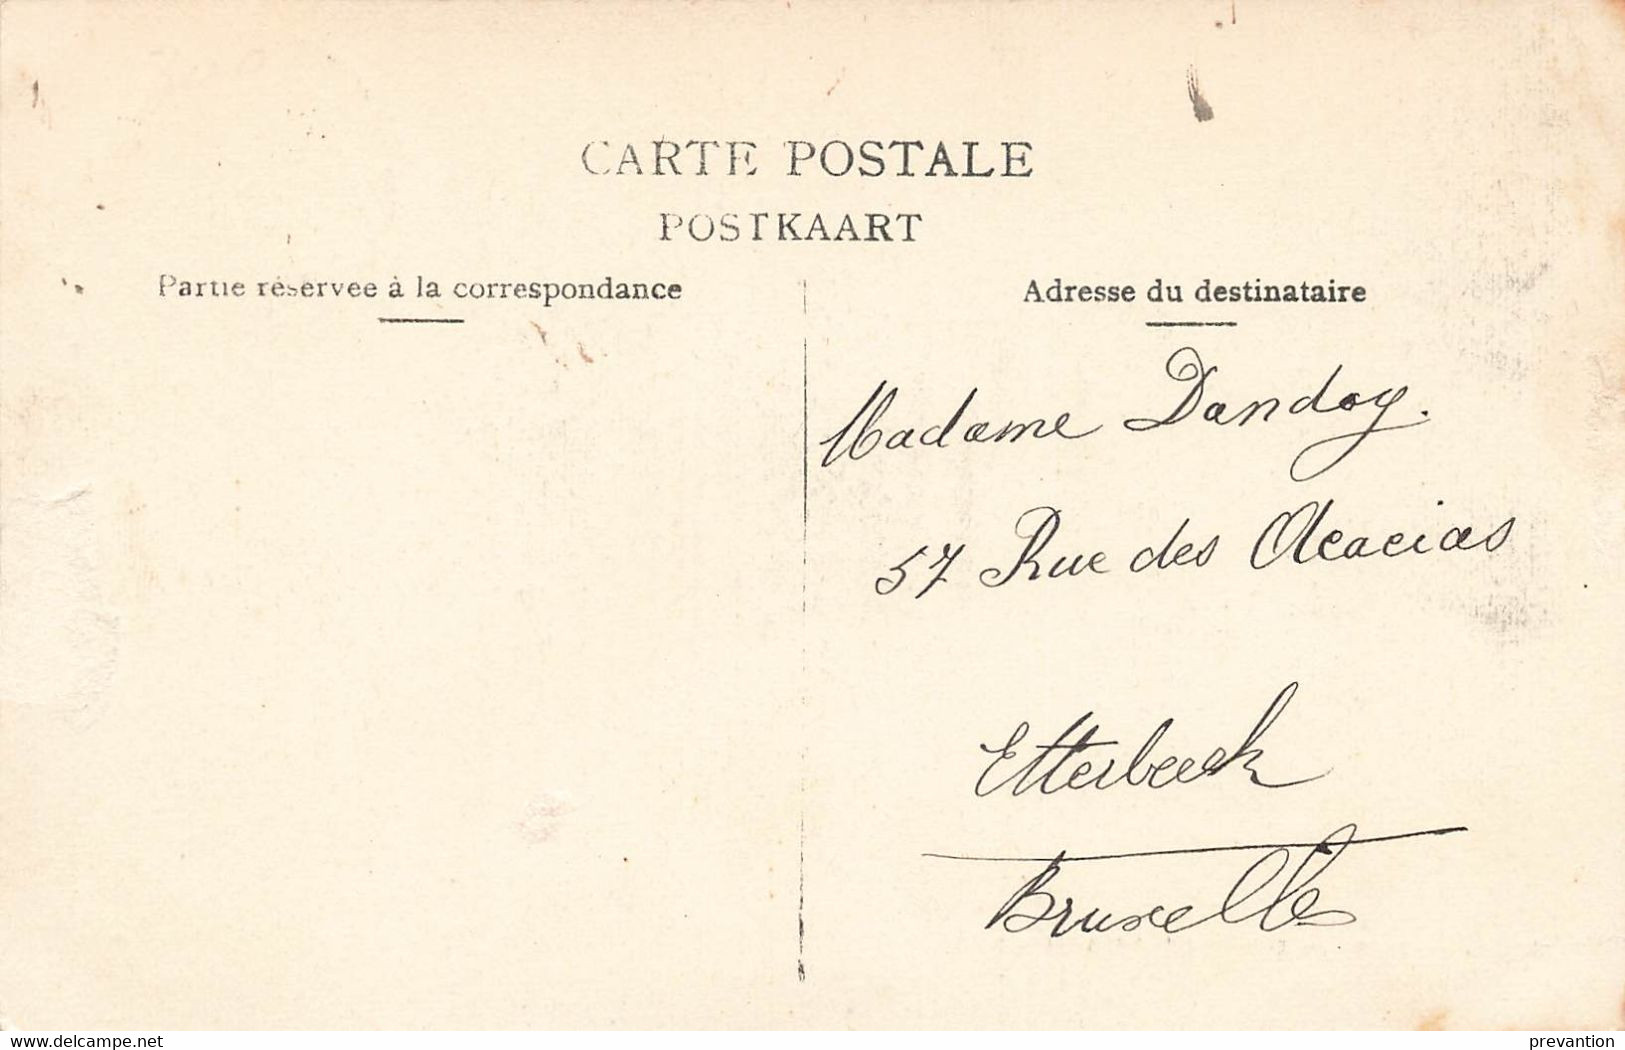 CARTE POSTALE
POSTKAART
Partie réservée à la correspondance
Adresse du destinataire
Madame Dandoy.
57 Rue des Acacias
Etterbeek
Bruxelles
delcampe.net
prevantion